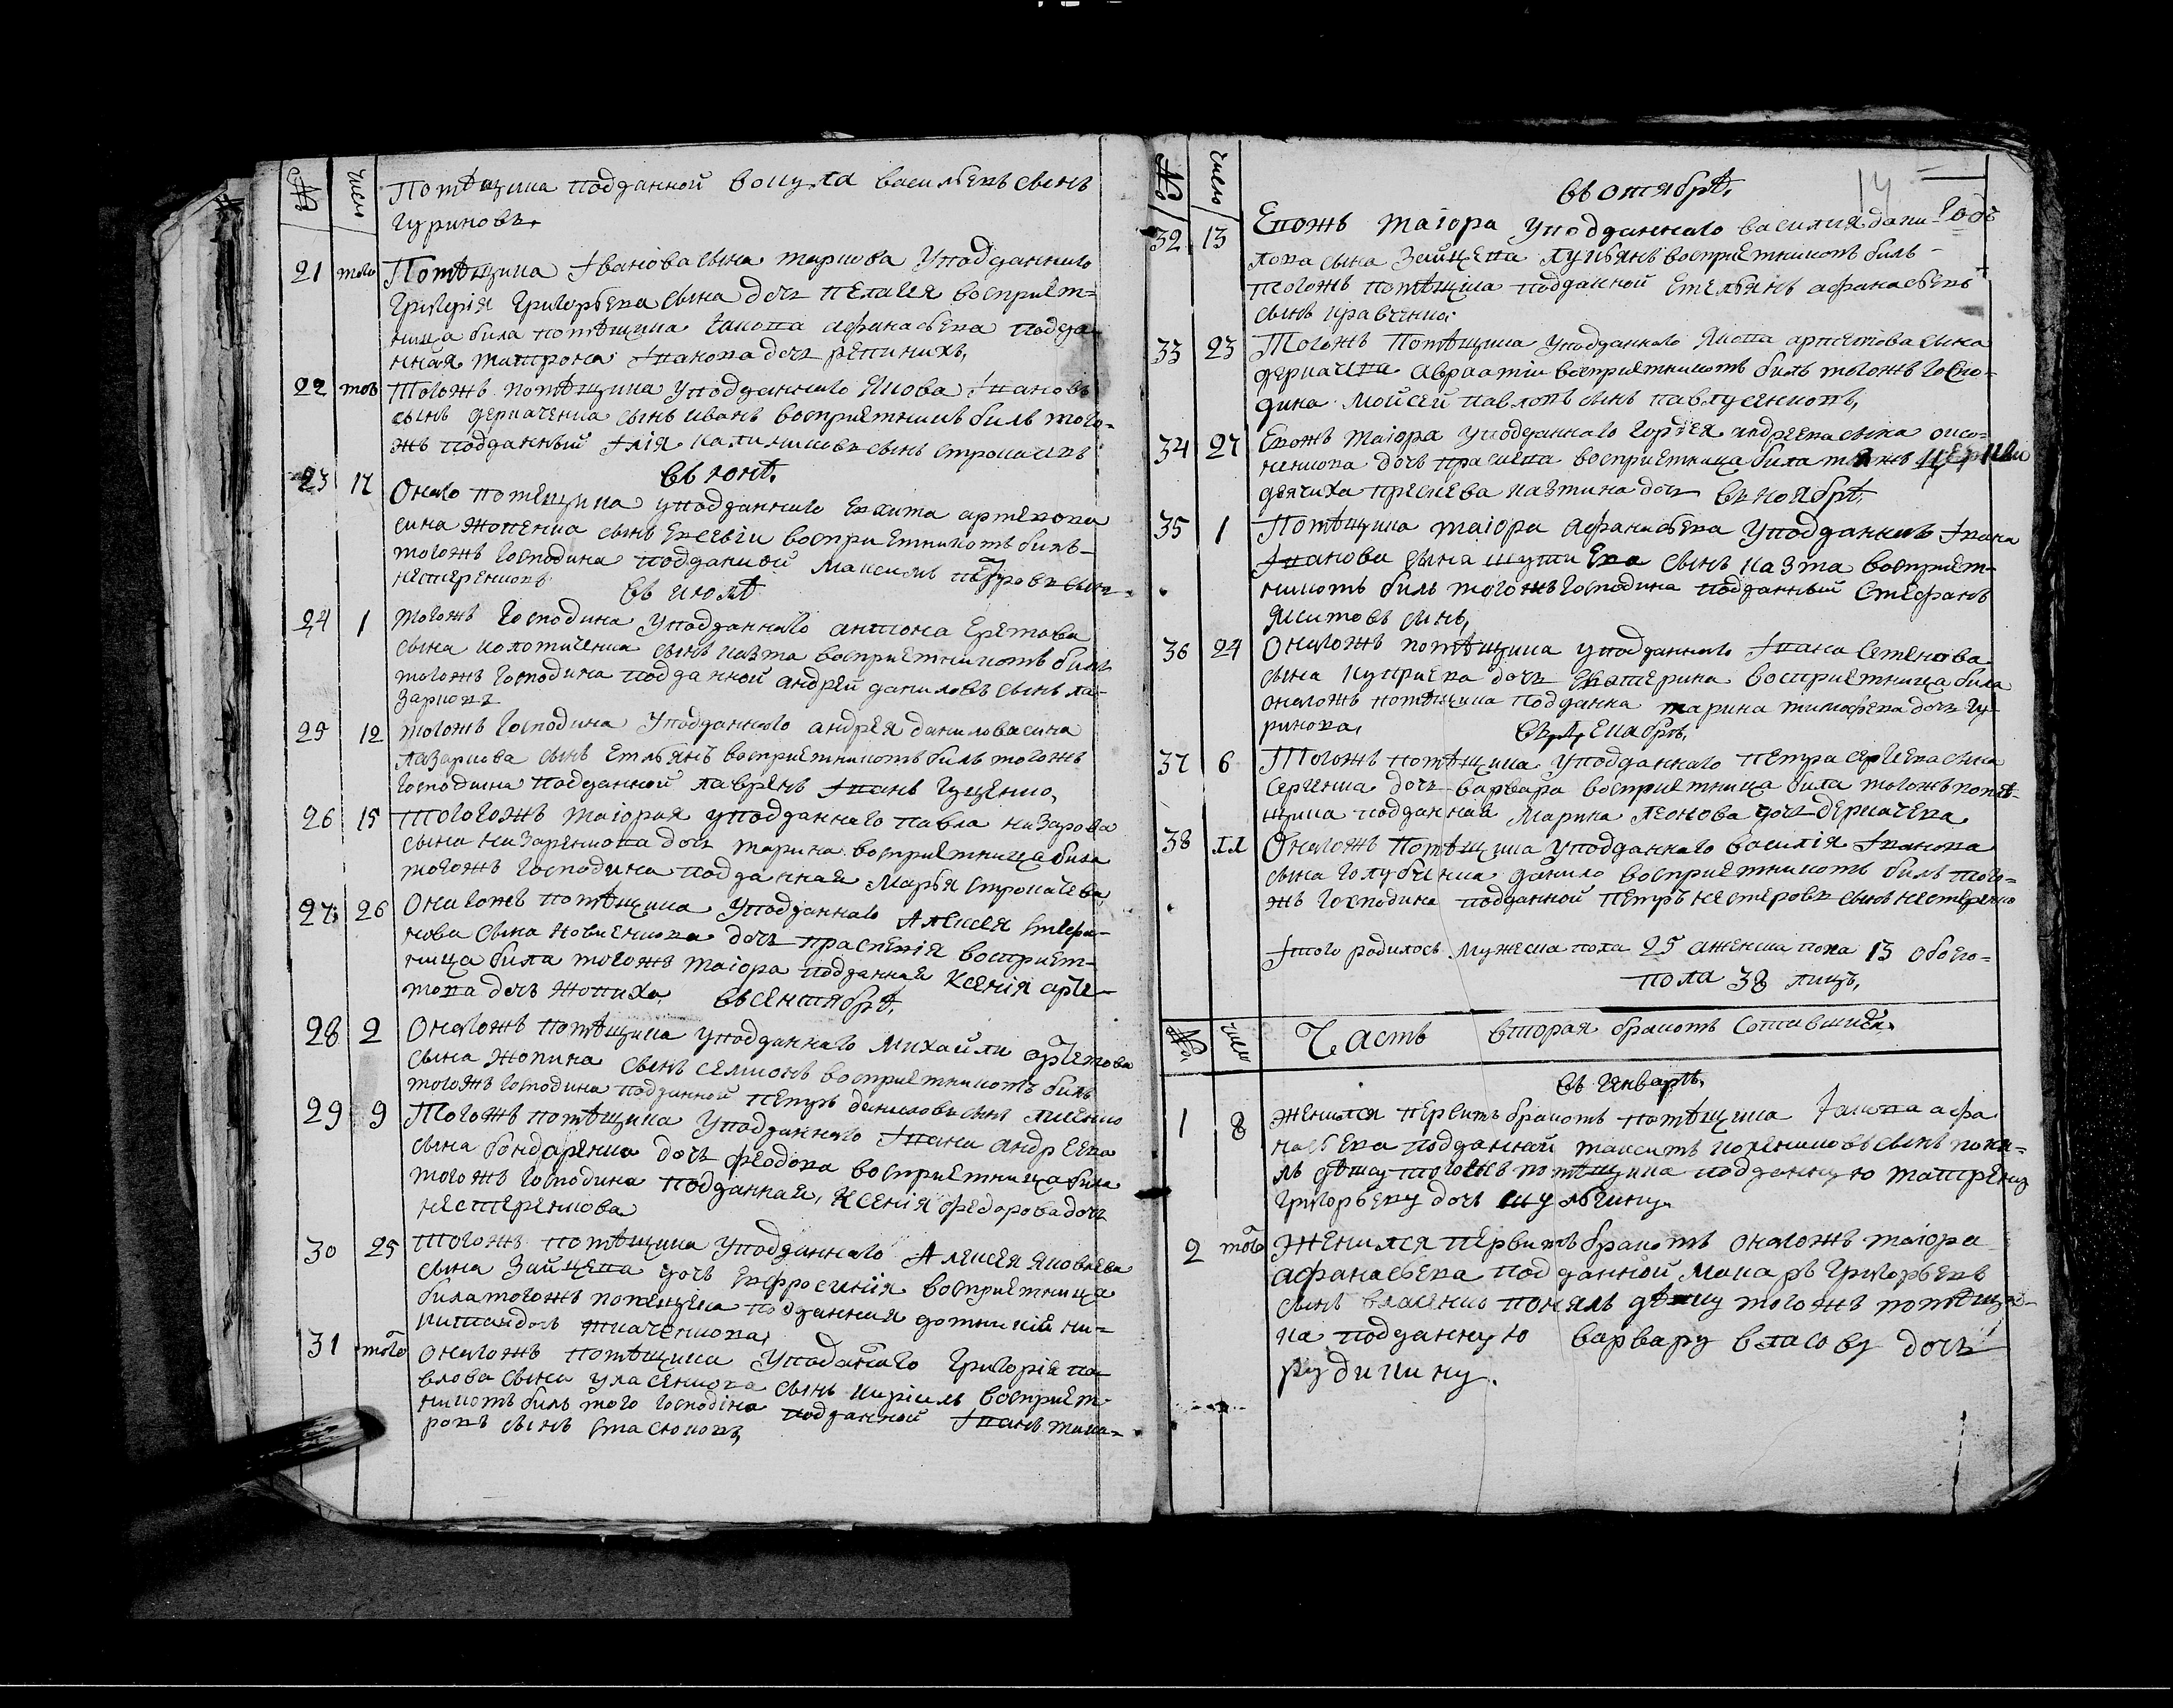 № число
Помѣщика подданной вокула васильевъ сынъ
гуриновъ,
21 того Помѣщика Іванова сына маркова Уподданнаго
григорія григорьева сына дочь пелагея восприем-
ница била помѣщика Іакова афанасьева подда-
нная матрона Іванова дочь репиниха,
22 тог Тогожъ помѣщика уподданнаго Якова Івановъ
сынъ деркаченка сынъ иванъ восприемникъ билъ того-
жъ подданный Ілія калиниковъ сынъ строкачевъ
въ юнѣ.
23 17 Онаго помещика уподданнаго Никита артемова
сина жопенка сынъ Евсевіи восприемникомъ билъ-
тогожъ господина подданной Максимъ петровъ сынъ
нестеренковъ
въ июлѣ
24 1 тогожъ господина уподданнаго антона Еремова
сына колотиченка сынъ козма восприемникомъ билъ
тогожъ господина подданной андрей даниловъ сынъ ла-
зарковъ
25 12 тогожъ господина Уподданнаго андрея данилова сина
лазаркова сынъ Емльянъ восприемникомъ билъ тогожъ
господина подданной лавренъ Іванъ гуценко,
26 15 тогогожъ маіорая уподданнаго павла назарова
сына назаренкова дочь марина восприемница била
тогожъ господина подданная Марья строкачева
27 26 Онагожъ помѣщика Уподданнаго Алексея
сына новиенкова дочь праскевія восприем-
ница била тогожъ маіора подданная Ксенія арте-
мова дочь жопиха, въ сентябрѣ,
28 2 Онагожъ помѣщика уподданнаго Михайли артемова
сына жопина сынъ семионъ восприемникомъ билъ
тогожъ господина подданной петръ даниловъ сынъ
29 9 Тогожъ помѣщика Уподданнаго Івана андреева
сына бондаренка дочь феодора восприемница била
тогожъ господина подданная, Ксенія федорова дочь
нестеренкова
30 25 тогожъ помѣщика уподданнаго Алексея яковлева
сына зайцева дочь Ефросинія восприемница
била тогожъ помещика подданная
дочь ткаченкова,
31 того онагожъ помѣщика Уподданаго григорія па-
влова сына уласенкова сынъ кирилъ восприем-
никомъ билъ того господіна подданной Іванъ мака-
ровъ сынъ стасюковъ,
№ число 14
въ октябрѣ,
годъ
32 13 Евожъ маіора уподданнаго василия дани-
лова сына зайцева лукьянъ восприемникомъ билъ-
тогожъ помѣщика подданной Емельянъ афанасьевъ
сынъ кравченка
33 23 Тогожъ помѣщика уподданнаго Якова артемова сына
деркачева авраамти восприемникомъ билъ тогожъ госпо-
дина Моисей павловъ сынъ павлусенковъ,
34 27 Евожъ маіора уподданнаго гордея андреева сына
дочь прасковя восприемница била церкви
дячиха козмина дочь въ ноябрѣ,
35 1 Помѣщика маіора афанасьева уподданнаго Івана
Іванова сына сынъ козма восприем-
никомъ билъ тогожъ господина подданный Стефанъ
Якимовъ сынъ,
36 24 Онагожъ помѣщика уподданнаго Івана Семенова
сына куприева дочь Екатерина восприемница била
онагожъ помѣщика подданна марина тимофева дочь гу-
ринова, въ декабрѣ,
37 6 Тогожъ помѣщика Уподданнаго петра сергеева сина
сергенка дочь варвара восприемница била тогожъ помѣ-
щика подданная Марина леонова дочь деркачева
38 11 Онагожъ помѣщика уподданнаго василія Іванова
сына голубенка данило восприемникомъ билъ того-
жъ господина подданной петръ нестеровъ сынъ нестеренко
Ітого родилось мужеска пола 25 аженска пола 13 обоего-
пола 38 лицъ,
№ число Часть вторая бракомъ Сочитавшися.
въ генварѣ,
1 8 женился первимъ бракомъ помѣщика Іакова афа
насьева подданной максимъ сынъ поня-
лъ дѣвку тогожъ помѣщика подданную матрену
григорьеву дочь шульгину.
2 того Женился первимъ бракомъ онагожъ маіора
афанасьева подданной Макаръ григорьевъ
сынъ власенко понялъ дѣвку тогожъ помѣщи-
ка подданную варвару власову дочь
рудикину.